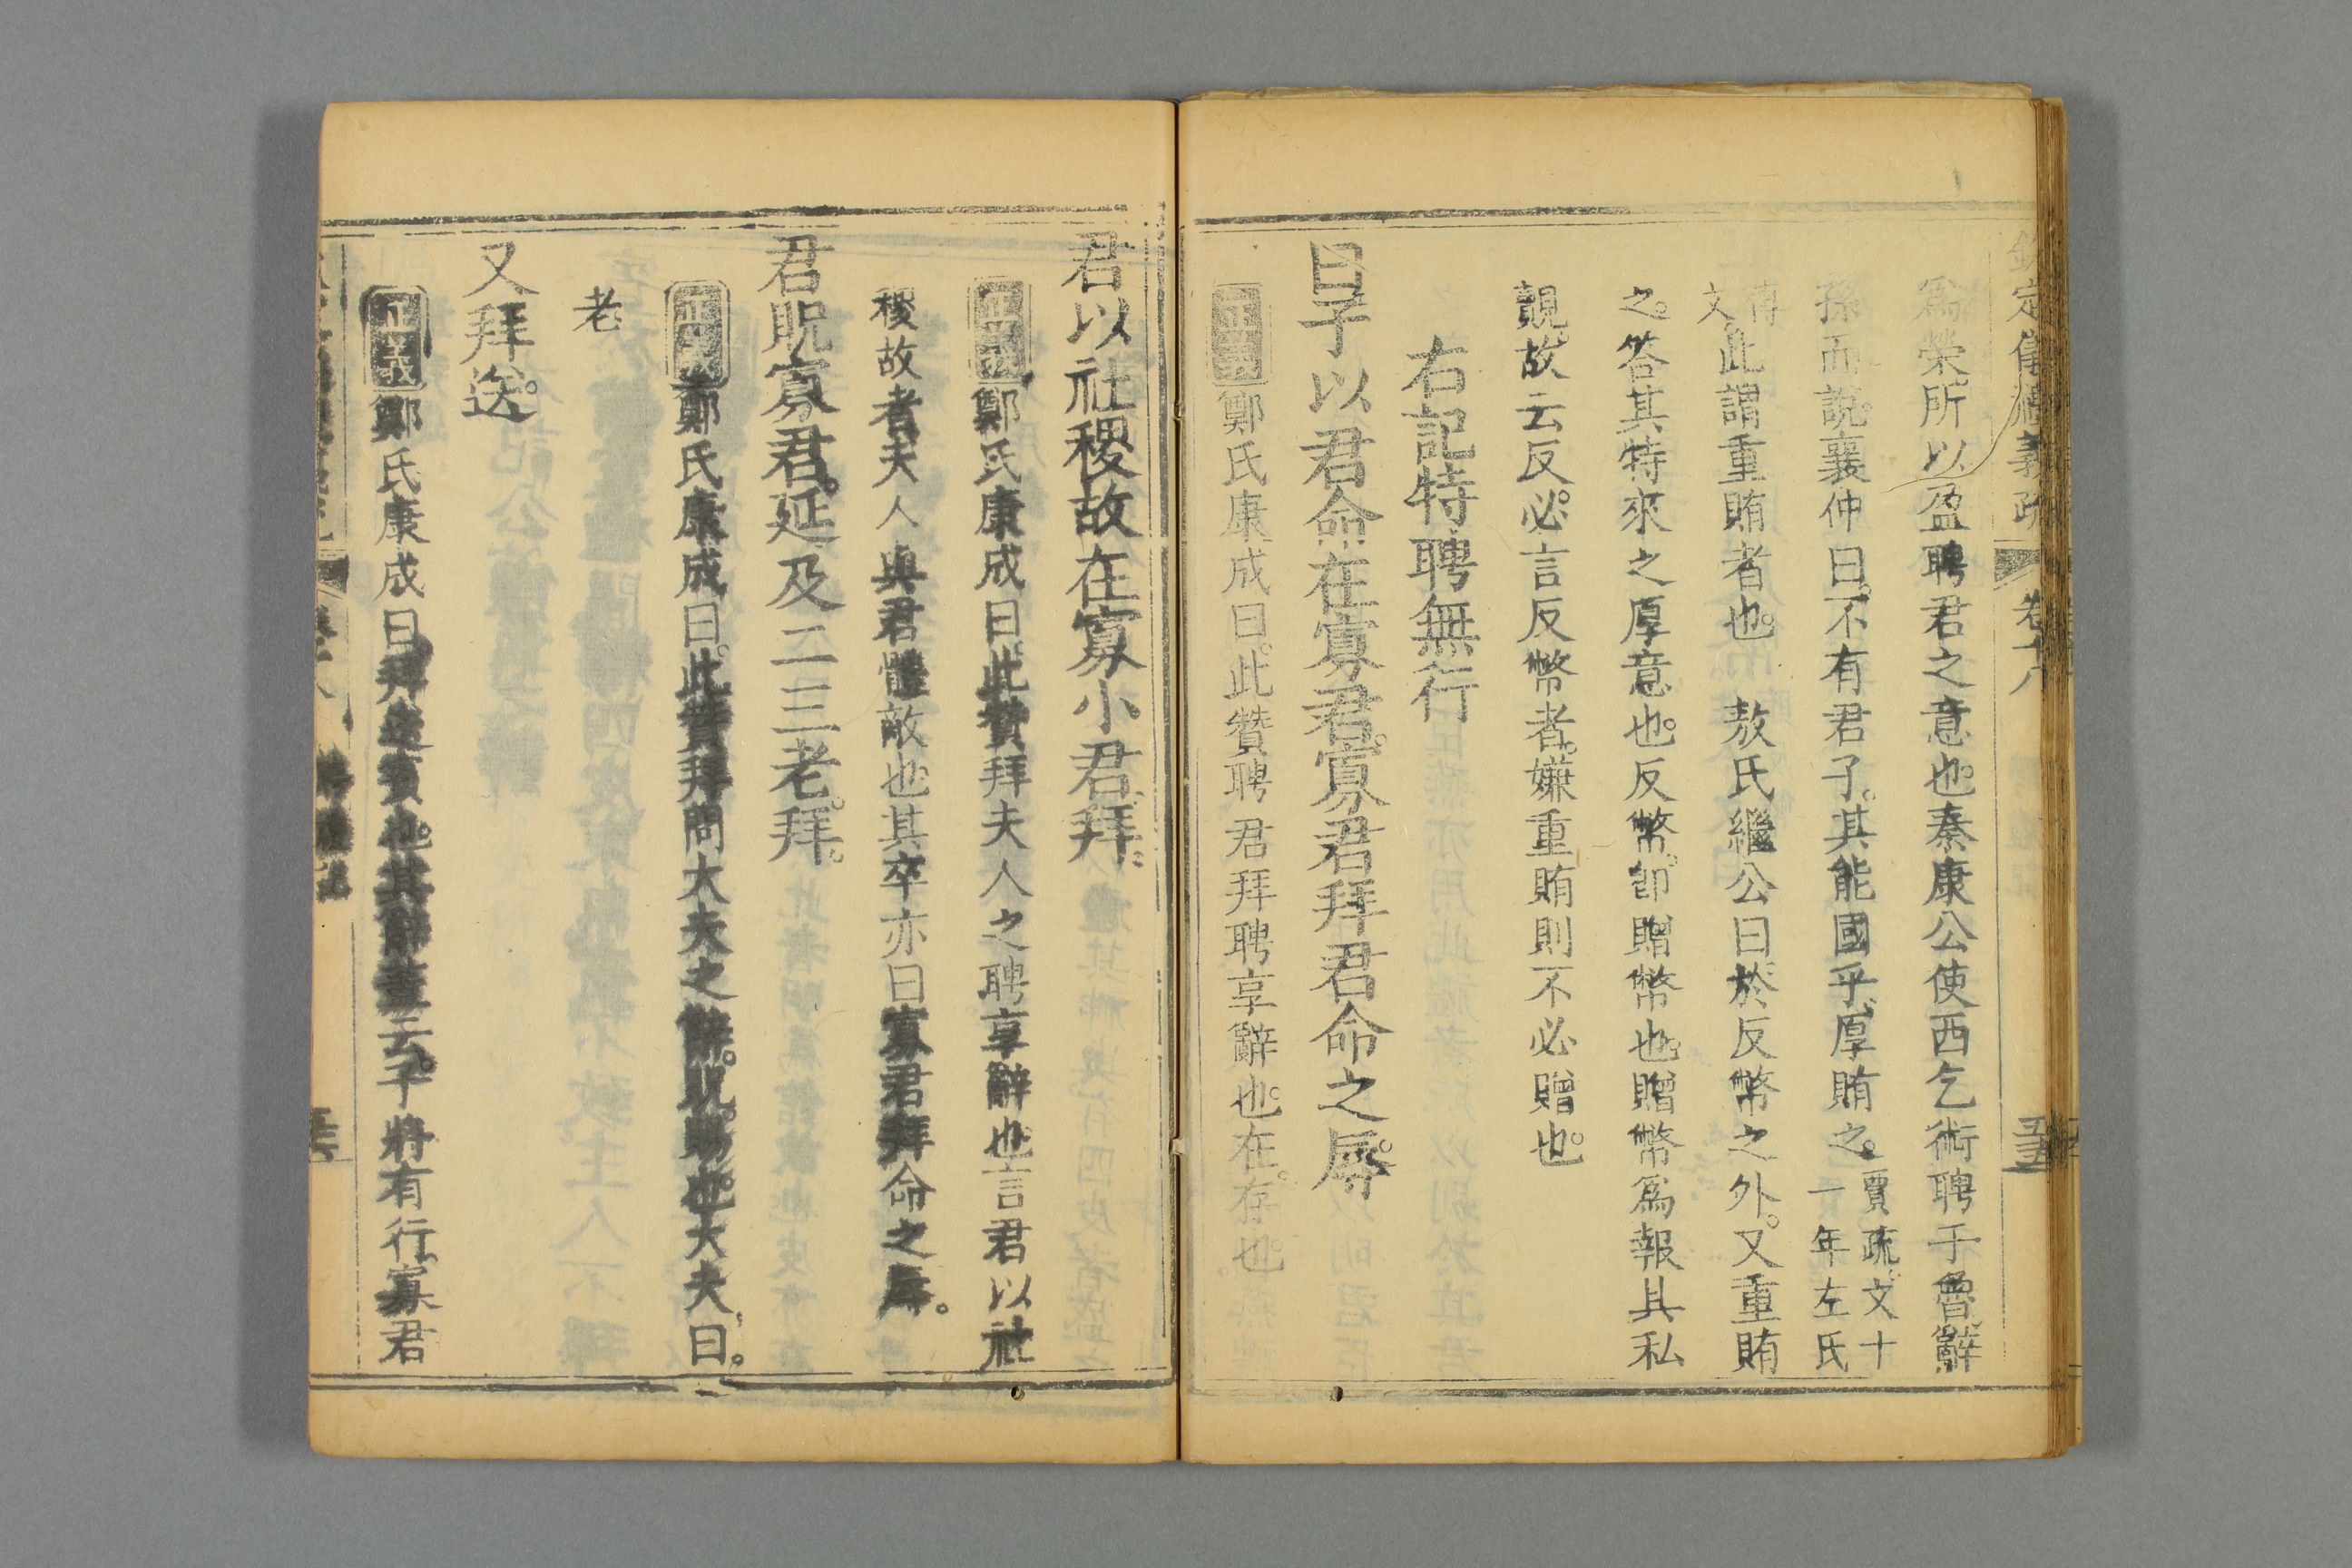 欽定儀禮義疏 卷十八 五
爲榮所以盈聘君之意也秦康公使西乞術聘于魯辭
孫而說襄仲曰不有君子其能國乎厚賄之賈疏文十一年左氏
傳文此謂重賄者也 敖氏繼公曰於反幣之外又重賄
之答其特來之厚意也反幣卽贈幣也贈幣爲報其私
覿故云反必言反幣者嫌重賄則不必贈也
右記特聘無行
曰子以君命在寡君寡君拜君命之辱
正義鄭氏康成曰此贊聘君拜聘享辭也在存也
君以社稷故在寡小君拜
正義鄭氏康成曰此贊拜夫人之聘享辭也言君以社
稷故者夫人與君體敵也其卒亦曰寡君拜命之辱
君貺寡君延及二三老拜
正義鄭氏康成曰此贊拜問大夫之辭貺賜也大夫曰
老
又拜送
正義鄭氏康成曰拜送賓也其辭蓋云子將有行寡君